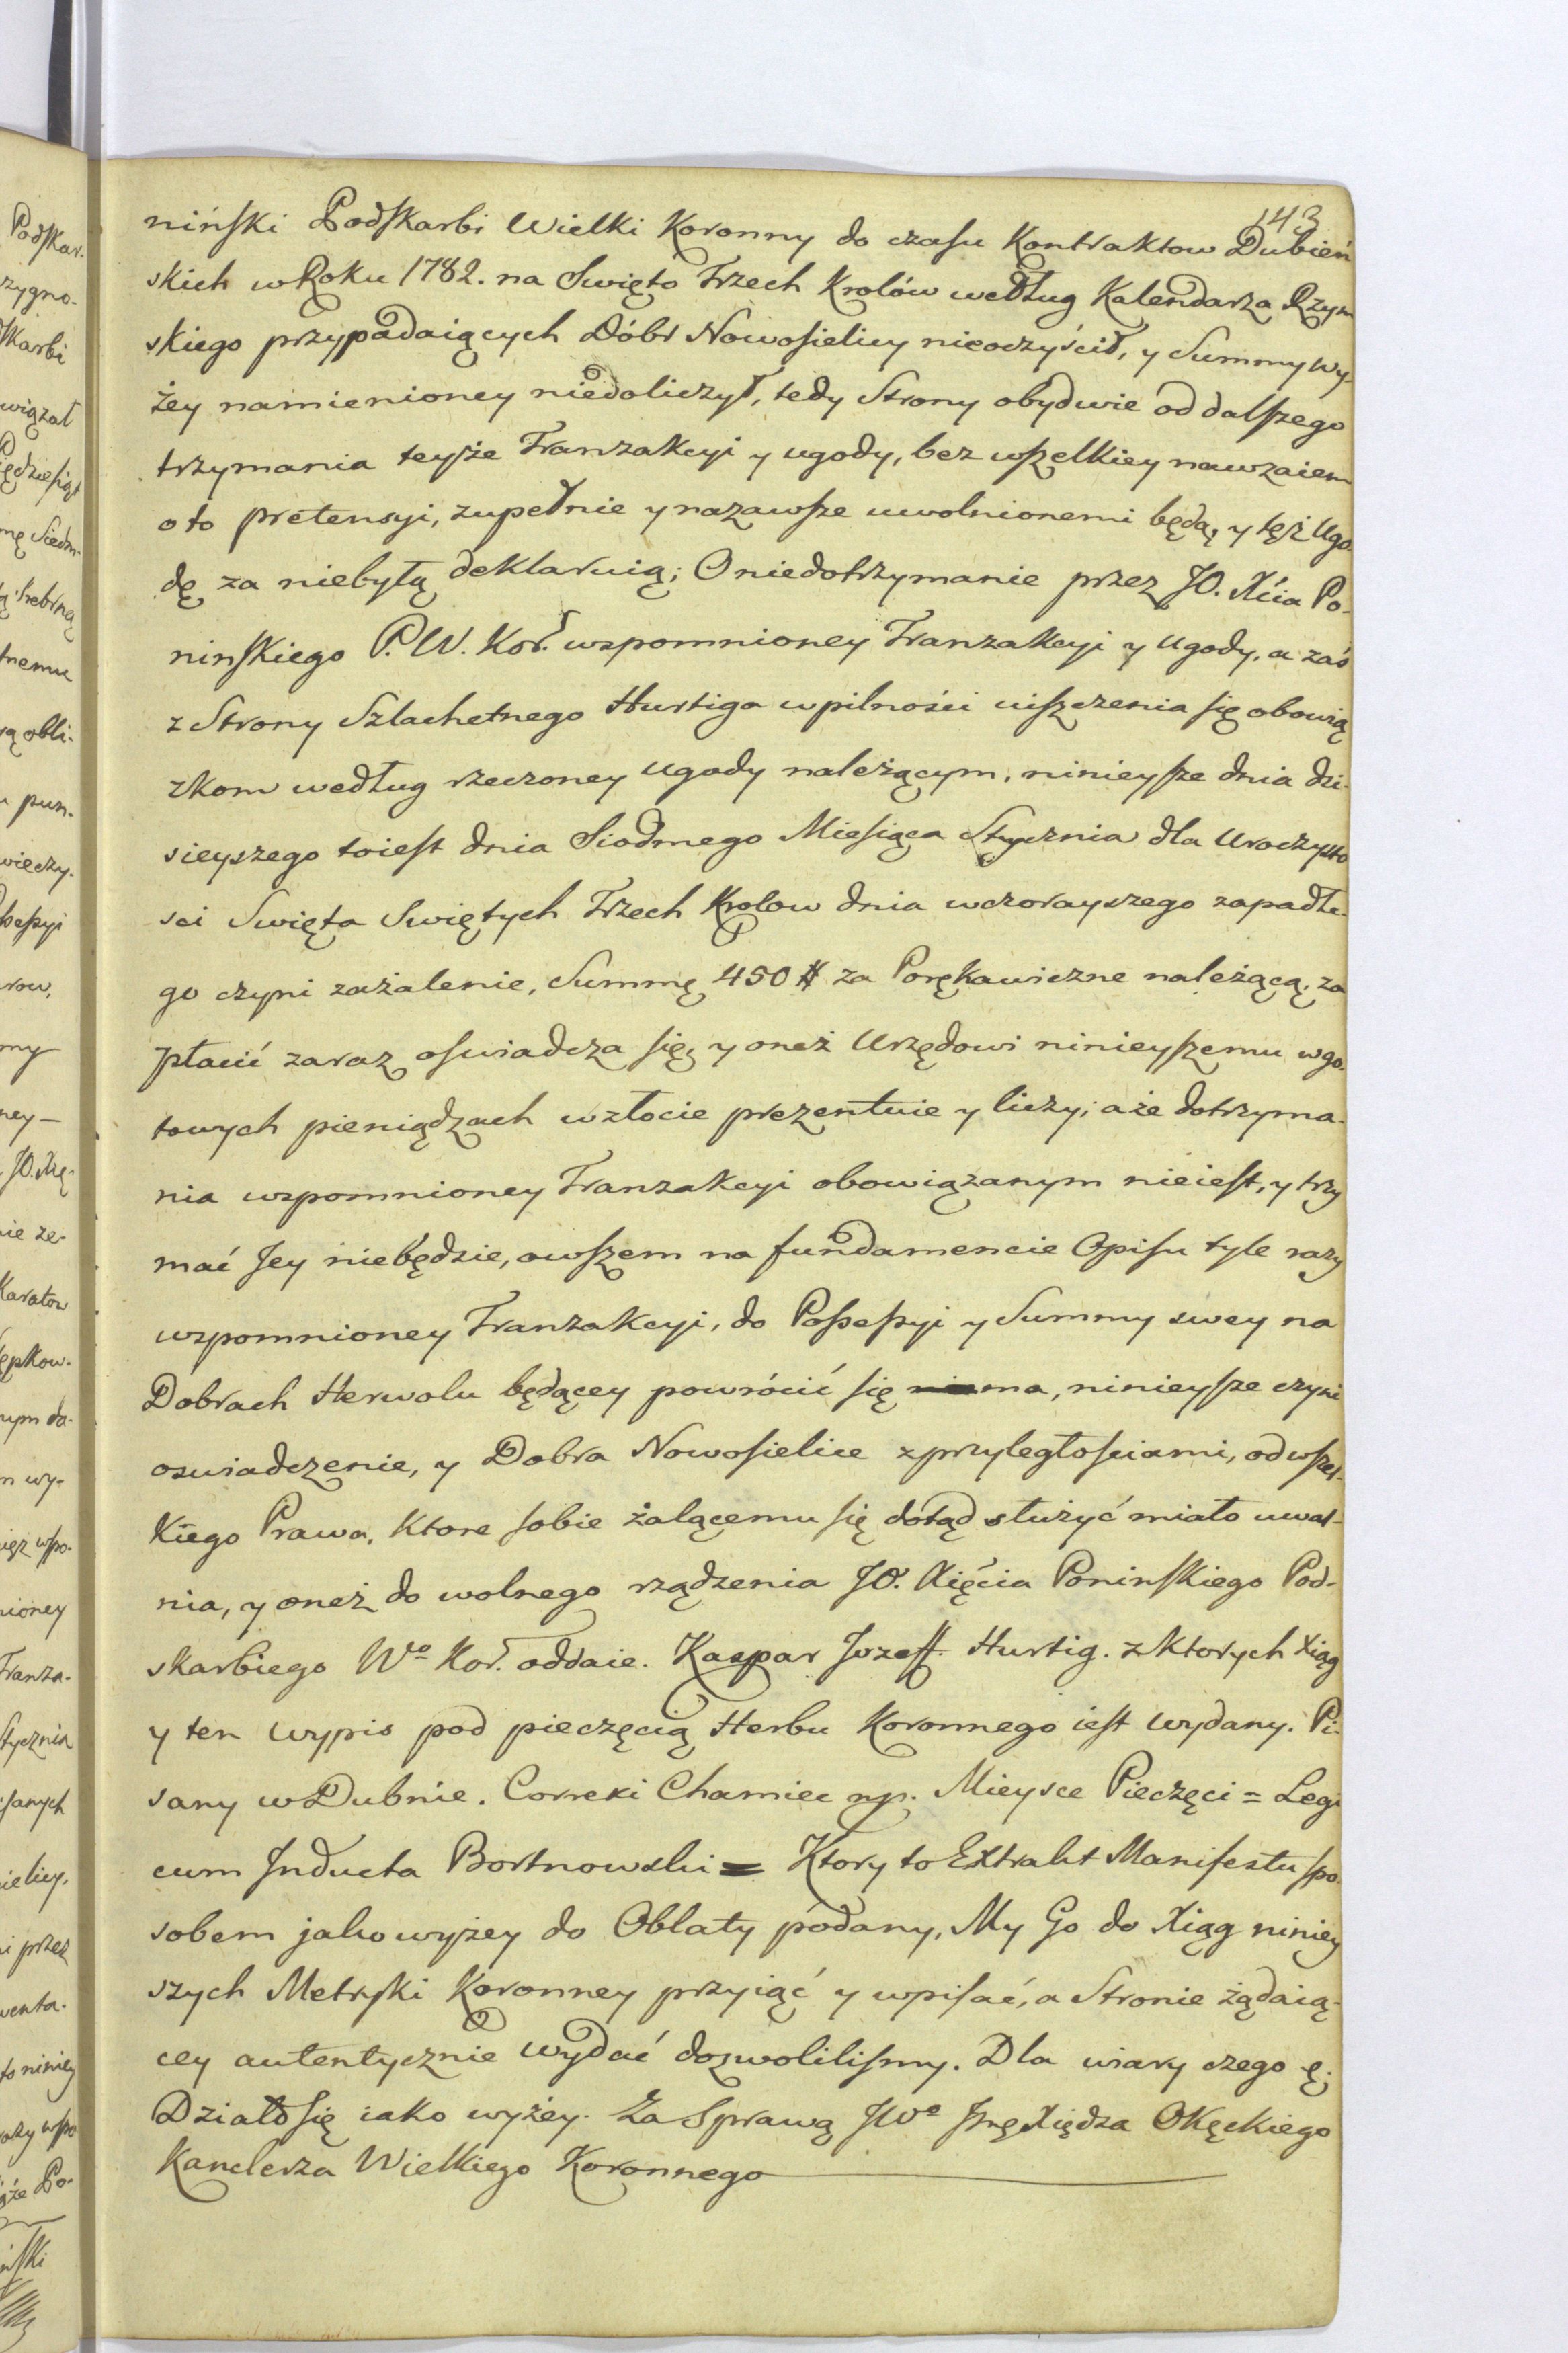 143
niński Podskarbi Wielki Koronny do czasu Kontraktow Dubień
skich w Roku 1782. na Swięto Trzech Krolów według Kalendarza Rzym
skiego przypadaiących Dóbr Nowosielicy nieoczyścił, y Summy wy-
żey namienioney niedoliczył, tedy Strony obydwie od dalszego
trzymania teyże Tranzakcyi y ugody, bez wszelkiey nawzaiem
o to pretensyi, zupełnie y nazawsze uwolnionemi będą, y tęż Ugo-
dę za niebyłą deklaruią; O niedotrzymanie przez JO. Xcia Po-
ninskiego P. W. Kor. wspomnioney Tranzakcyi y Ugody, a zaś
z Strony Szlachetnego Hurtiga w pilności uiszczenia się obowią
zkom według rzeczoney Ugody należącym, ninieysze dnia dzi-
sieyszego toiest dnia Siodmego Miesiąca Stycznia dla Uroczysto
sci Swięta Swiętych Trzech Krolow dnia wczorayszego zapadłe-
go czyni zażalenie, Summę 450 # za Porękawiczne należącą, za
płacić zaraz oswiadcza się, y oneż Urzędowi ninieyszemu w go-
towych pieniądzach w złocie prezentuie y liczy; a że dotrzyma-
nia wspomnioney Tranzakcyi obowiązanym nieiest, y trzy
mać Jey niebędzie, owszem na fundamencie Opisu tyle razy
wspomnioney Tranzakcyi, do Possessyi y Summy swey na
Dobrach Herwolu będącey powrócić się ma, ninieysze czyni
oswiadczenie, y Dobra Nowosielice z przyległosciami, od wszel-
kiego Prawa, ktore sobie żalącemu się dotąd służyć miało uwal-
nia, y oneż do wolnego rządzenia JO. Xięcia Poninskiego Pod-
skarbiego Wo Kor. oddaie. Kaspar Jozeff Hurtig. z Ktorych Xiąg
y ten Wypis pod pieczęcią Herbu Koronnego iest wydany. Pi-
sany w Dubnie. Correxi Chamiec mp. Mieysce Pieczęci = Legi
cum Inducta Bortnowski = Ktory to Extrakt Manifestu spo-
sobem jako wyżey do Oblaty podany, My Go do Xiąg niniey
szych Metryki Koronney przyiąć y wpisać, a Stronie żądaią-
cey autentycznie wydać dozwolilismy. Dla wiary czego &.
Działo się iako wyżey. Za Sprawą JWo Jmę Xiędza Okęckiego
Kanclerza Wielkiego Koronnego